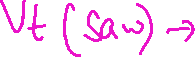 Vt (saw) →